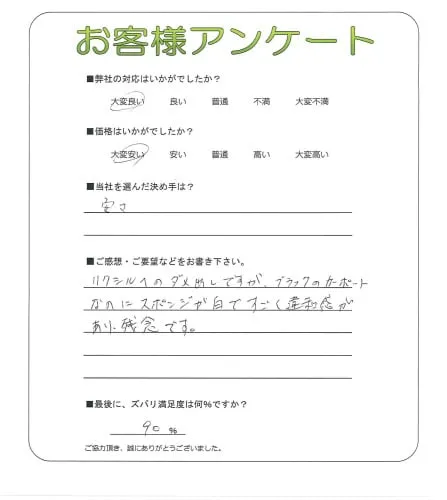 お客様アンケート
■弊社の対応はいかがでしたか？
大変良い 良い 普通 不満 大変不満
■価格はいかがでしたか？
大変安い 安い 普通 高い 大変高い
■当社を選んだ決め手は？
安さ
■ご感想・ご要望などをお書き下さい。
リクシルへのダメ出しですが、ブラックのカーポート
なのにスポンジが白ですごく違和感が
あり、残念です。
■最後に、ズバリ満足度は何％ですか？
90 %
ご協力頂き、誠にありがとうございました。